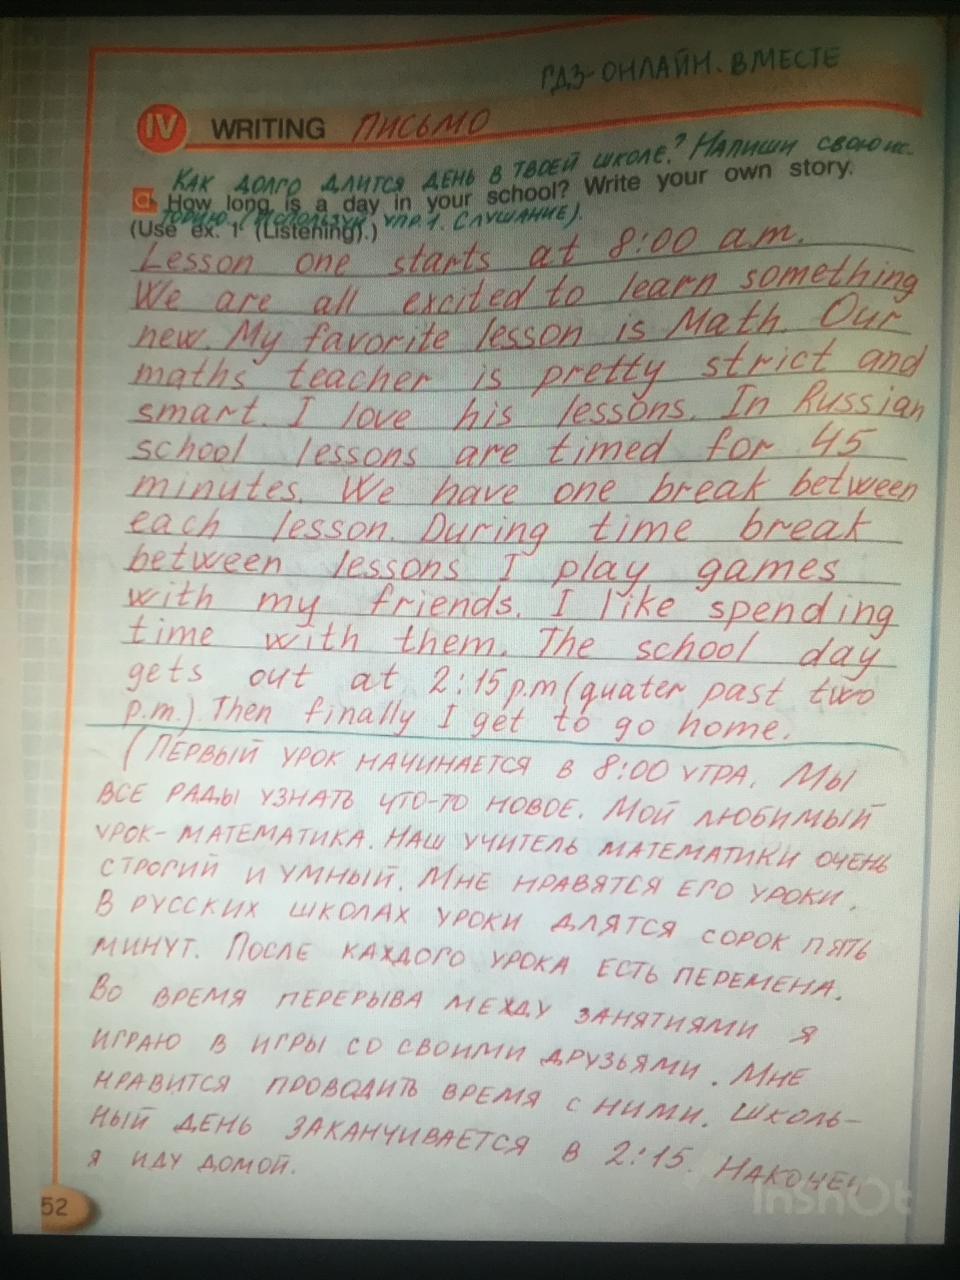 ГДЗ-ОНЛАЙН. ВМЕСТЕ
IV WRITING ПИСЬМО
КАК ДОЛГО ДЛИТСЯ ДЕНЬ В ТВОЕЙ ШКОЛЕ? НАПИШИ СВОЮ ИС-
a How long is a day in your school? Write your own story.
ТОРИЮ. (ИСПОЛЬЗУЙ УПР.1. СЛУШАНИЕ).
(Use ex. 1 (Listening).)
Lesson one starts at 8:00 a.m.
We are all excited to learn something
new. My favorite lesson is Math. Our
maths teacher is pretty strict and
smart. I love his lessons. In Russian
school lessons are timed for 45
minutes. We have one break between
each lesson. During time break
between lessons I play games
with my friends. I like spending
time with them. The school day
gets out at 2:15 p.m (quater past two
p.m.). Then finally I get to go home.
(ПЕРВЫЙ УРОК НАЧИНАЕТСЯ В 8:00 УТРА. МЫ
ВСЕ РАДЫ УЗНАТЬ ЧТО-ТО НОВОЕ. МОЙ ЛЮБИМЫЙ
УРОК- МАТЕМАТИКА. НАШ УЧИТЕЛЬ МАТЕМАТИКИ ОЧЕНЬ
СТРОГИЙ И УМНЫЙ. МНЕ НРАВЯТСЯ ЕГО УРОКИ.
В РУССКИХ ШКОЛАХ УРОКИ ДЛЯТСЯ СОРОК ПЯТЬ
МИНУТ. ПОСЛЕ КАЖДОГО УРОКА ЕСТЬ ПЕРЕМЕНА.
ВО ВРЕМЯ ПЕРЕРЫВА МЕЖДУ ЗАНЯТИЯМИ Я
ИГРАЮ В ИГРЫ СО СВОИМИ ДРУЗЬЯМИ. МНЕ
НРАВИТСЯ ПРОВОДИТЬ ВРЕМЯ С НИМИ. ШКОЛЬ-
НЫЙ ДЕНЬ ЗАКАНЧИВАЕТСЯ В 2:15. НАКОНЕЦ
Я ИДУ ДОМОЙ.
InshOt
52